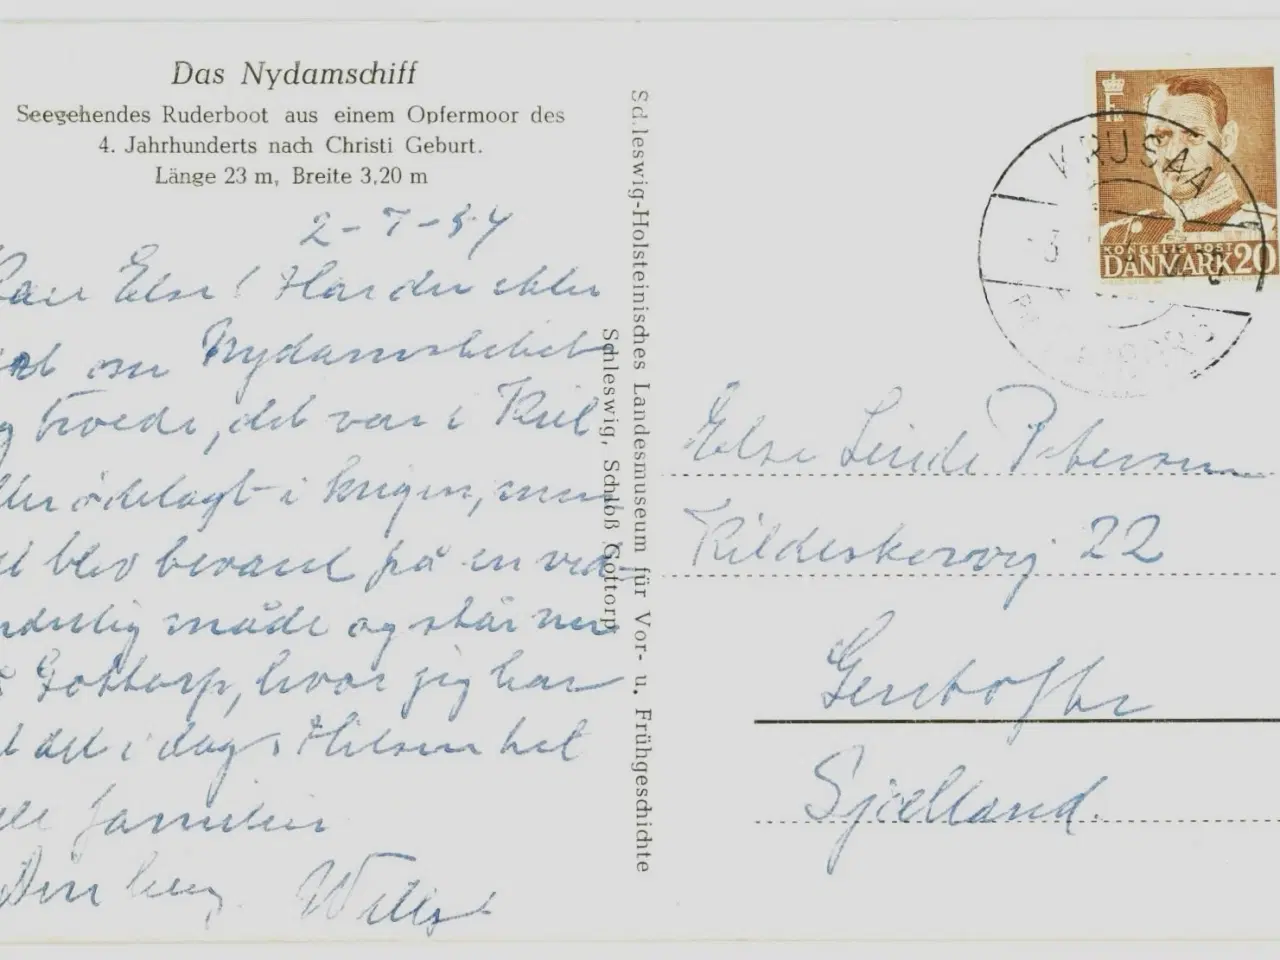 Das Nydamschiff
Seegehendes Ruderboot aus einem Opfermoor des
4. Jahrhunderts nach Christi Geburt.
Länge 23 m, Breite 3,20 m
2-7-54
Else! Har du
om
troede, det var i Kiel
ødelagt i krigen, men
blev bevaret på en vid-
underlig måde og står nu
Gottorp, hvor jeg har
det i dag. Hilsen
familien
Schleswig-Holsteinisches Landesmuseum für Vor- u. Frühgeschichte
Schleswig, Schloß Gottorp
KRUSAA
KONGELIG POST
DANMARK 20
Else Linde Petersen
Kildeskovvej 22
Gentofte
Sjælland.